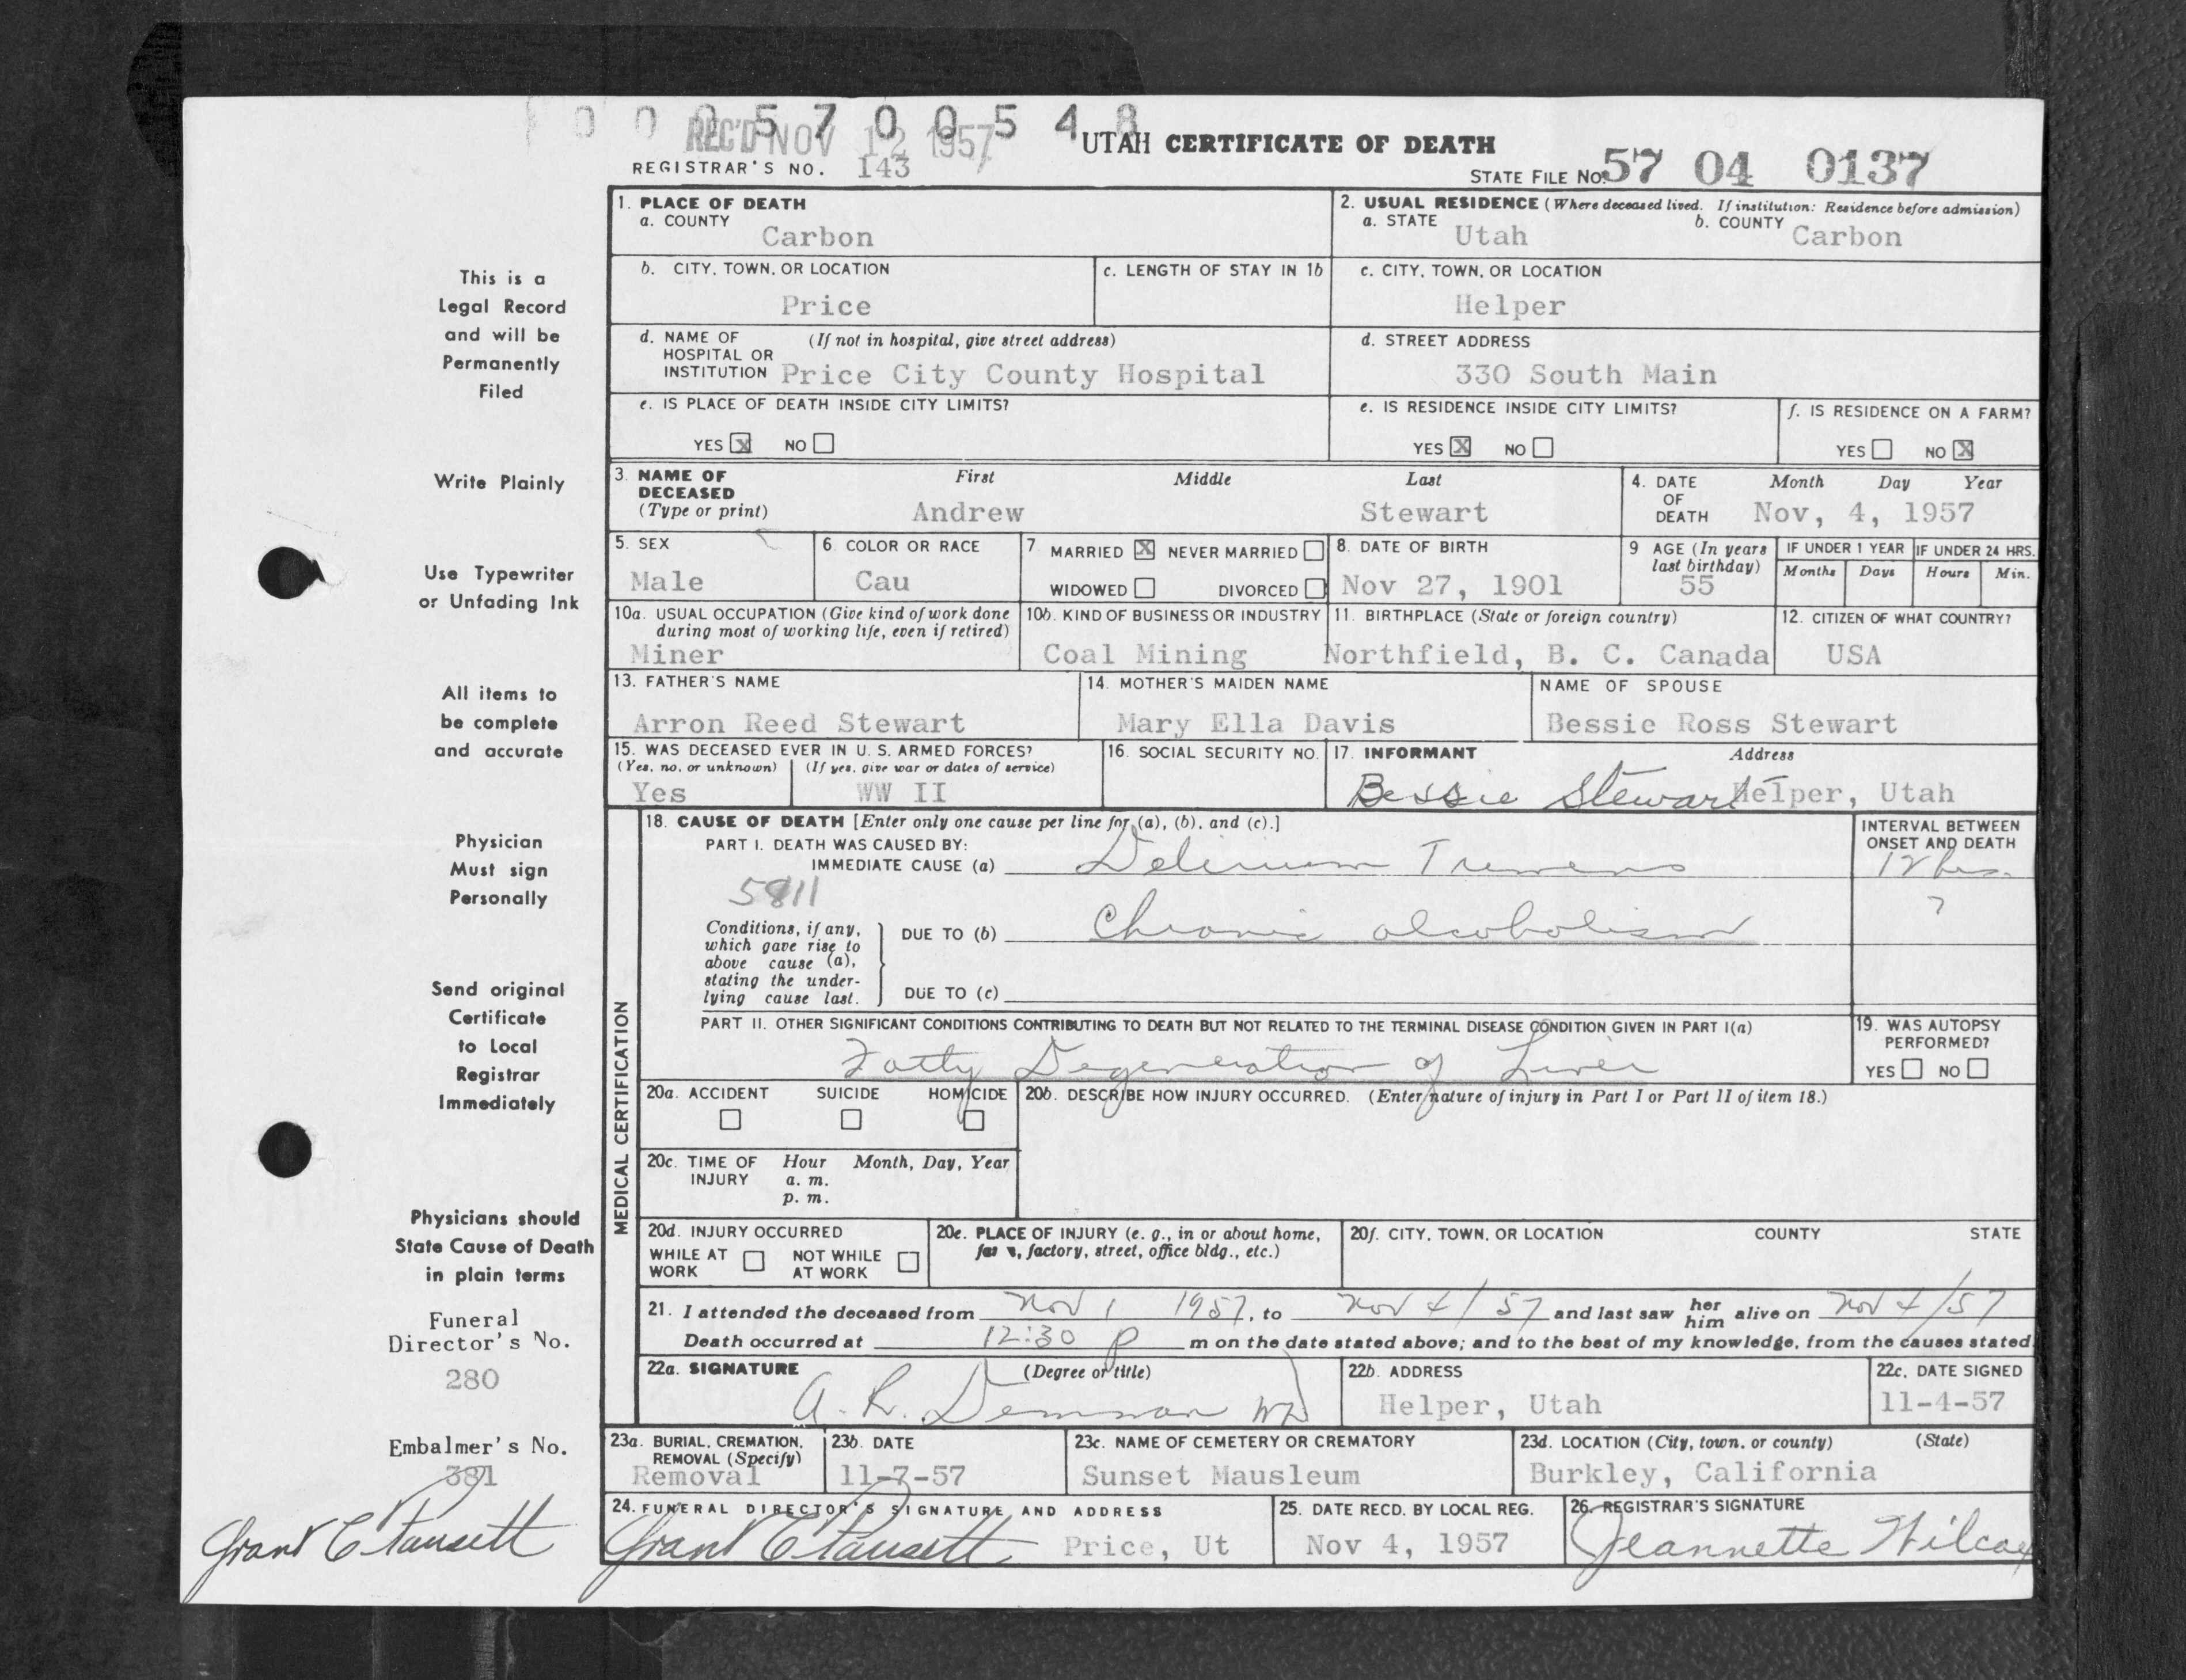 0 0 0 5 7 0 0 5 4 8
REC'D NOV 12 1957
UTAH CERTIFICATE OF DEATH
REGISTRAR'S NO. 143
STATE FILE NO. 57 04 0137
This is a
Legal Record
and will be
Permanently
Filed
Write Plainly
Use Typewriter
or Unfading Ink
All items to
be complete
and accurate
Physician
Must sign
Personally
Send original
Certificate
to Local
Registrar
Immediately
Physicians should
State Cause of Death
in plain terms
Funeral
Director's No.
280
Embalmer's No.
381
1. PLACE OF DEATH
a. COUNTY Carbon
2. USUAL RESIDENCE (Where deceased lived. If institution: Residence before admission)
a. STATE Utah b. COUNTY Carbon
b. CITY, TOWN, OR LOCATION Price
c. LENGTH OF STAY IN 1b
c. CITY, TOWN, OR LOCATION Helper
d. NAME OF HOSPITAL OR INSTITUTION (If not in hospital, give street address) Price City County Hospital
d. STREET ADDRESS 330 South Main
e. IS PLACE OF DEATH INSIDE CITY LIMITS?
YES X NO
e. IS RESIDENCE INSIDE CITY LIMITS?
YES X NO
f. IS RESIDENCE ON A FARM?
YES NO X
3. NAME OF DECEASED (Type or print) First Middle Last
Andrew Stewart
4. DATE OF DEATH Month Day Year
Nov, 4, 1957
5. SEX Male
6. COLOR OR RACE Cau
7. MARRIED X NEVER MARRIED
WIDOWED DIVORCED
8. DATE OF BIRTH Nov 27, 1901
9 AGE (In years last birthday) 55
IF UNDER 1 YEAR Months Days
IF UNDER 24 HRS. Hours Min.
10a. USUAL OCCUPATION (Give kind of work done during most of working life, even if retired) Miner
10b. KIND OF BUSINESS OR INDUSTRY Coal Mining
11. BIRTHPLACE (State or foreign country) Northfield, B. C. Canada
12. CITIZEN OF WHAT COUNTRY? USA
13. FATHER'S NAME Arron Reed Stewart
14. MOTHER'S MAIDEN NAME Mary Ella Davis
NAME OF SPOUSE Bessie Ross Stewart
15. WAS DECEASED EVER IN U. S. ARMED FORCES?
(Yes, no, or unknown) (If yes, give war or dates of service)
Yes WW II
16. SOCIAL SECURITY NO.
17. INFORMANT Address
Bessie Stewart Helper, Utah
MEDICAL CERTIFICATION
18. CAUSE OF DEATH [Enter only one cause per line for (a), (b), and (c).]
INTERVAL BETWEEN ONSET AND DEATH
PART I. DEATH WAS CAUSED BY:
IMMEDIATE CAUSE (a) Delerium Tremens 12 hrs.
5811
Conditions, if any, which gave rise to above cause (a), stating the underlying cause last.
DUE TO (b) Chronic alcoholism ?
DUE TO (c)
PART II. OTHER SIGNIFICANT CONDITIONS CONTRIBUTING TO DEATH BUT NOT RELATED TO THE TERMINAL DISEASE CONDITION GIVEN IN PART I(a)
Fatty Degeneration of Liver
19. WAS AUTOPSY PERFORMED?
YES NO
20a. ACCIDENT SUICIDE HOMICIDE
20b. DESCRIBE HOW INJURY OCCURRED. (Enter nature of injury in Part I or Part II of item 18.)
20c. TIME OF INJURY Hour Month, Day, Year
a. m.
p. m.
20d. INJURY OCCURRED
WHILE AT WORK NOT WHILE AT WORK
20e. PLACE OF INJURY (e. g., in or about home, farm, factory, street, office bldg., etc.)
20f. CITY, TOWN, OR LOCATION COUNTY STATE
21. I attended the deceased from Nov 1 1957, to Nov 4/57 and last saw her him alive on Nov 4/57
Death occurred at 12:30 p m on the date stated above; and to the best of my knowledge, from the causes stated
22a. SIGNATURE (Degree or title)
A. R. Demman MD
22b. ADDRESS Helper, Utah
22c. DATE SIGNED 11-4-57
23a. BURIAL, CREMATION, REMOVAL (Specify) Removal
23b. DATE 11-7-57
23c. NAME OF CEMETERY OR CREMATORY Sunset Mausleum
23d. LOCATION (City, town, or county) (State) Burkley, California
24. FUNERAL DIRECTOR'S SIGNATURE AND ADDRESS
Grant Price, Ut
25. DATE RECD. BY LOCAL REG. Nov 4, 1957
26. REGISTRAR'S SIGNATURE
Jeannette Wilcox
Grant